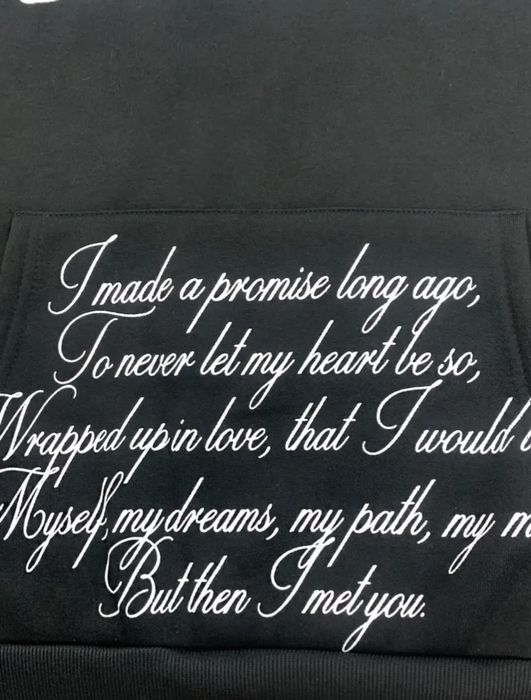 I made a promise long ago,
To never let my heart be so,
Wrapped up in love, that I would
Myself, my dreams, my path, my
But then I met you.